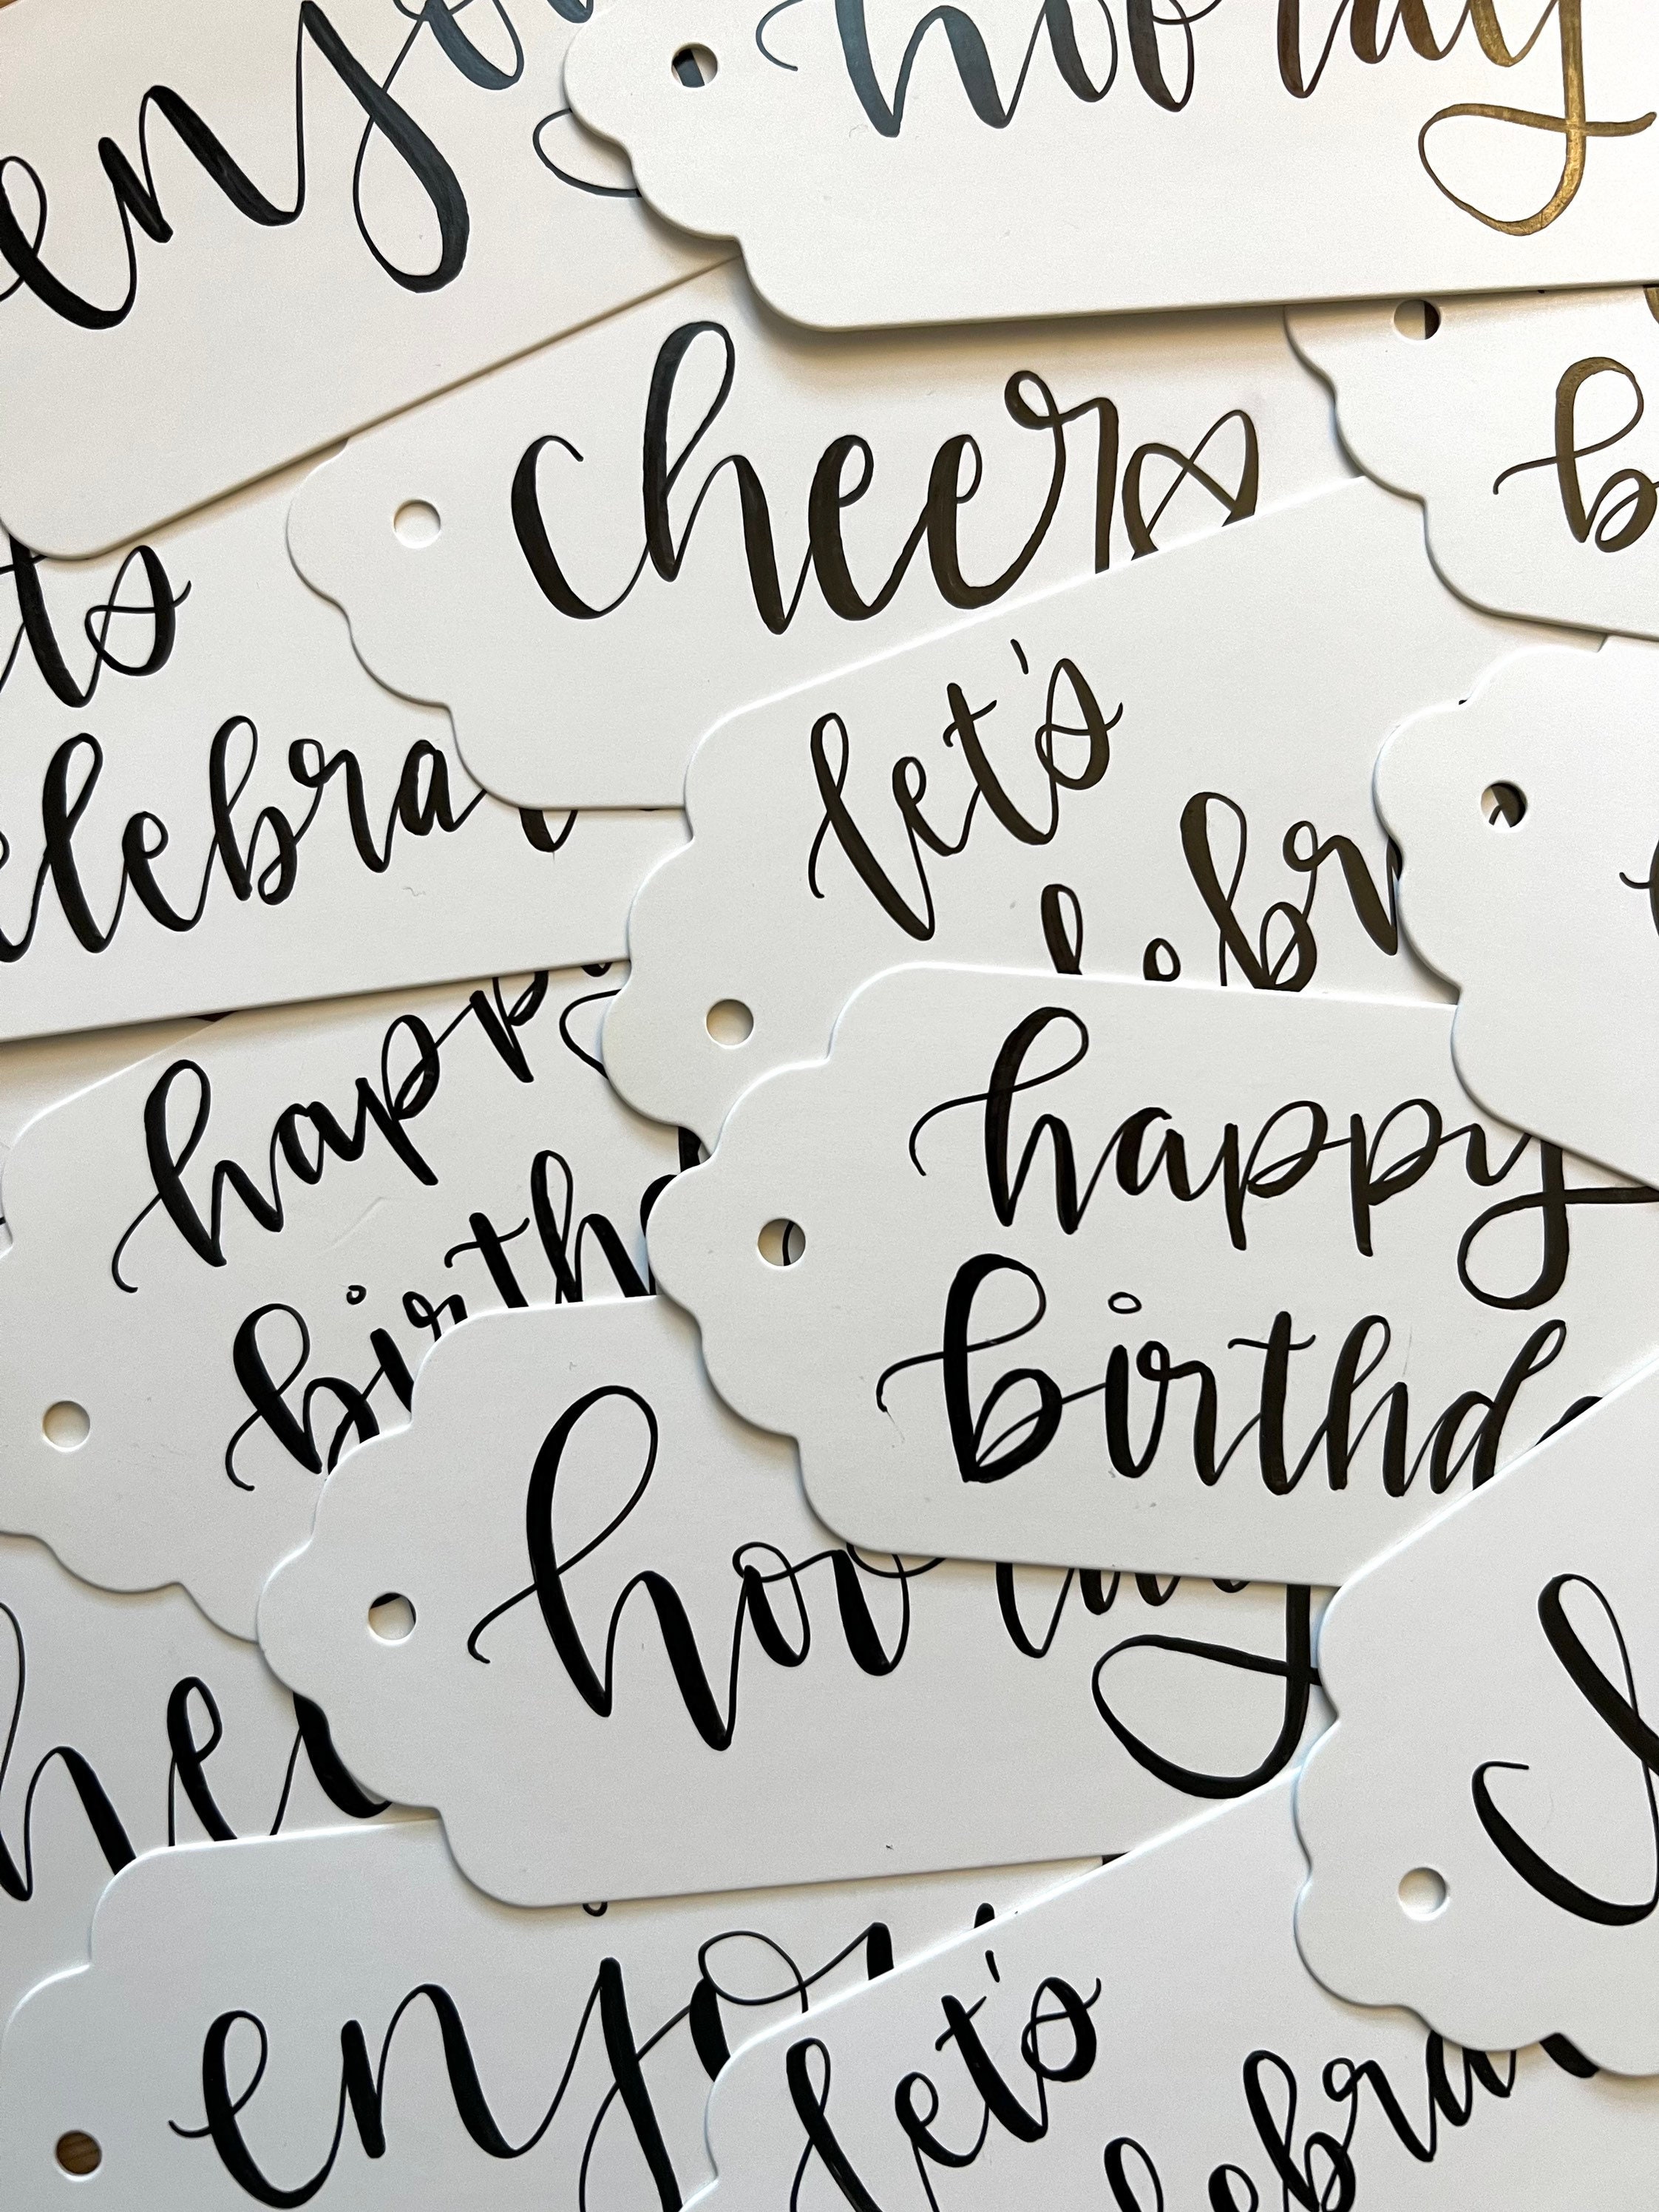 enjo
hooray
cheers
b
ts
elebra
let's
lebr
happ
birth
happy
birthd
hooray
hee
enjo
let's
lebra